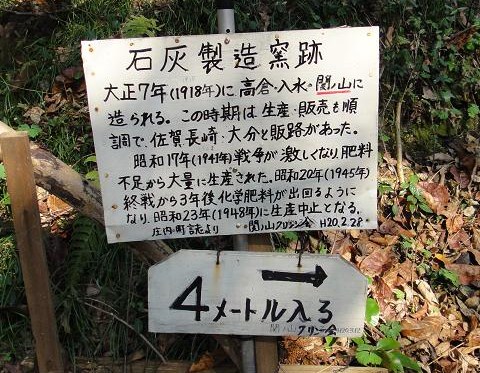 石灰製造窯跡
大正7年(1918年)に高倉・入水・関ノ山に
造られる。この時期は生産・販売も順
調で、佐賀長崎・大分と販路があった。
昭和17年(1941年)戦争が激しくなり、肥料
不足から大量に生産された。昭和20年(1945年)
終戦から3年後化学肥料が出回るように
なり、昭和23年(1948年)に生産中止となる。
庄内町誌より 関ノ山クリーン会 H20.2.28
4メートル入る
関ノ山クリーン会